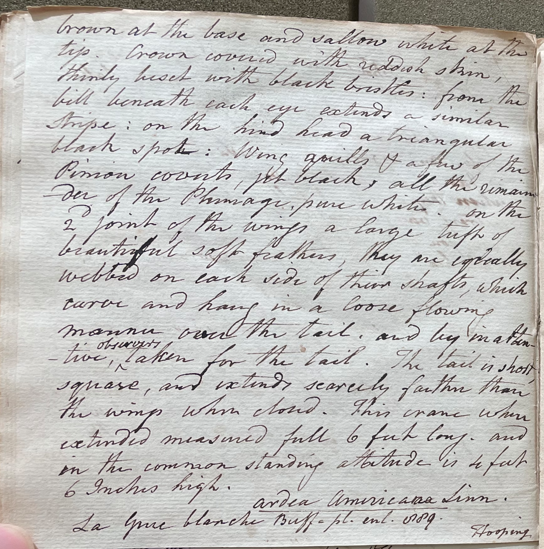 brown at the base and sallow white at the
tip. Crown covered with reddish skin,
thinly beset with black bristles: from the
bill beneath each eye extends a similar
stripe: on the hind head a triangular
black spot: Wing quills & a few of the
Pinion coverts, jet black, all the remain-
-der of the Plumage, pure white. on the
2d joint of the wings a large tuft of
beautiful soft feathers, they are equally
webbed on each side of their shafts, which
curve and hang in a loose flowing
manner over the tail. and by inatten-
-tive, observers taken for the tail. The tail is short,
square, and extends scarcely farther than
the wings when closed. This crane when
extended measured full 6 feet long. and
in the common standing attitude is 4 feet
6 Inches high.
ardea Americana Linn.
La Grue blanche Buff. pl. enl. 889.
Hooping